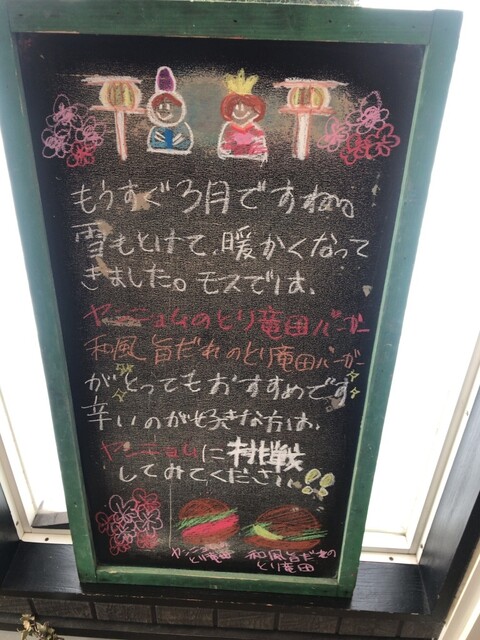 もうすぐ3月ですね。
雪もとけて、暖かくなって
きました。モスでは、
ヤンニョムのとり竜田バーガー
和風旨だれのとり竜田バーガー
がとってもおすすめです
辛いのが好きな方は、
ヤンニョムに挑戦
してみてください!!
ヤンニョム 和風旨だれの
とり竜田 とり竜田